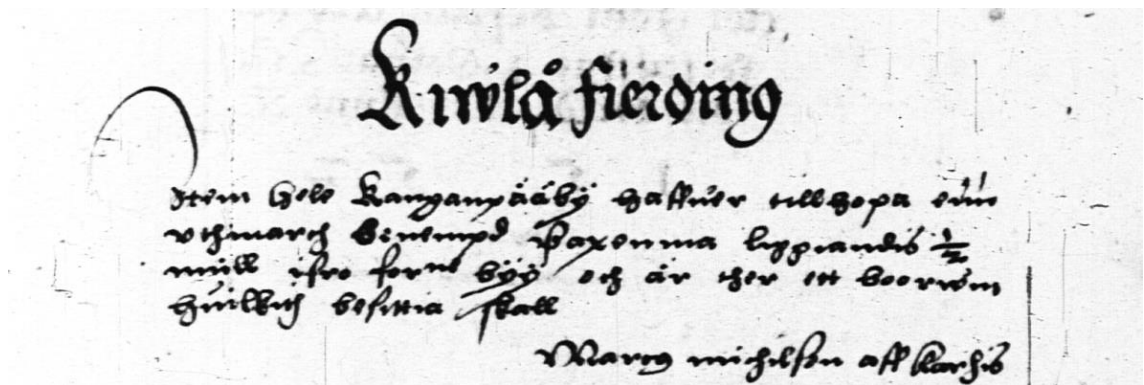 Kiwlå fierding
Item hele Kanganpääby haffuer tillhopa enn
vthmarch benempd Paxenma liggiandis ½
miill ifro forne byy och är ther ett boorwm
huilkith besittia skall
Marcus michilson aff Karhis